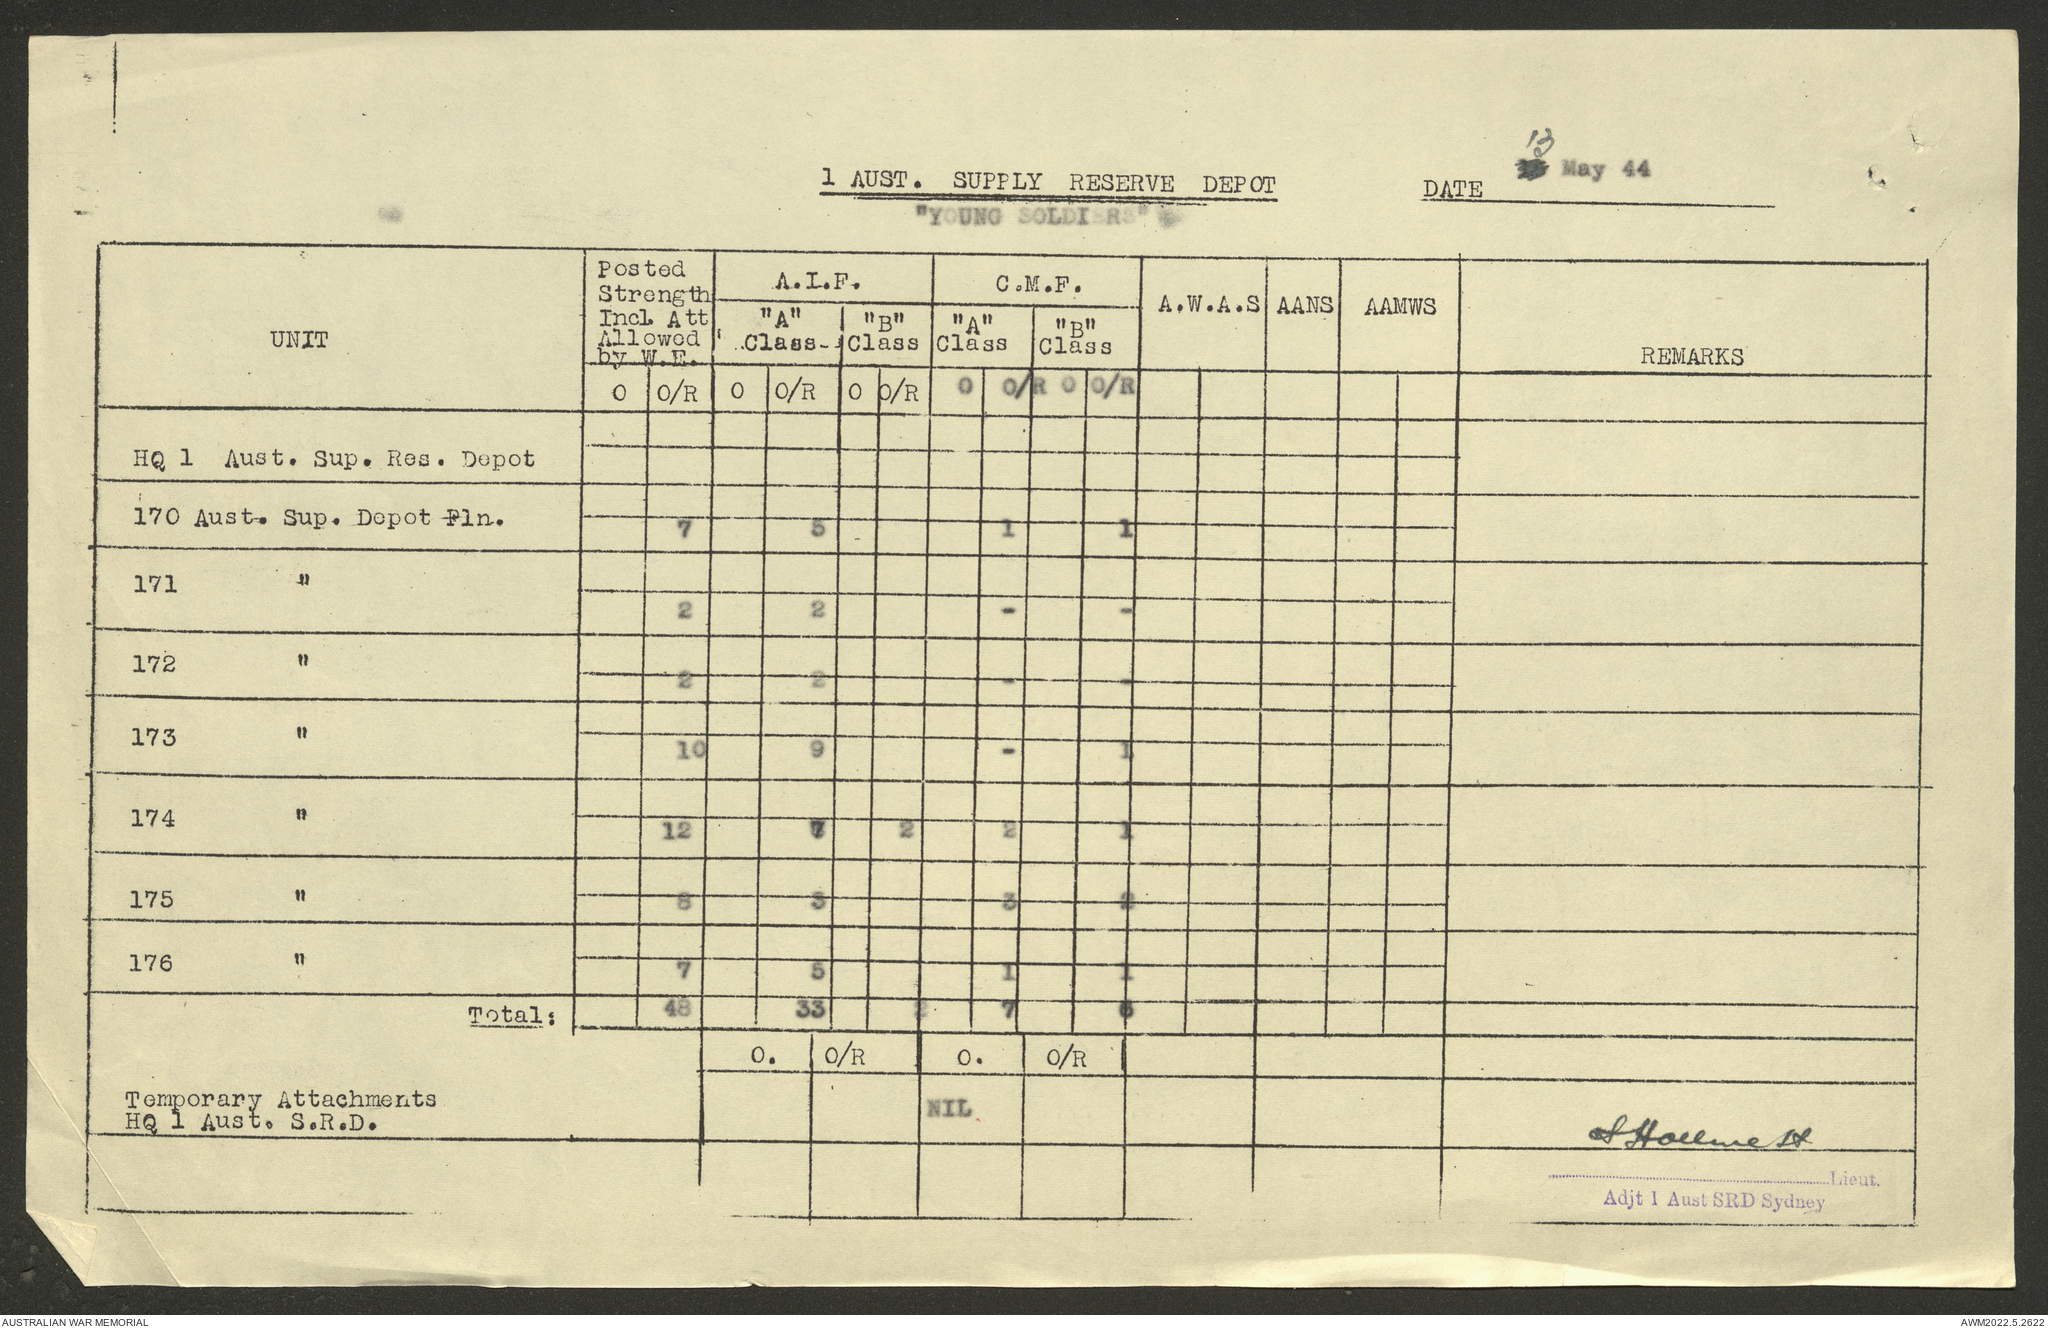 1 AUST. SUPPLY RESERVE DEPOT
"YOUNG SOLDIERS"
DATE 13 May 44
UNIT
Posted
Strength
Incl. Att
Allowed
by W.E.
A.I.F.
C.M.F.
"A"
Class
"B"
Class
"A"
Class
"B"
Class
A.W.A.S
AANS
AAMWS
REMARKS
O O/R O O/R O O/R O O/R O O/R
HQ 1 Aust. Sup. Res. Depot
170 Aust. Sup. Depot Pln. 7 5 1 1
171 " 2 2 - -
172 " 2 2 - -
173 " 10 9 - 1
174 " 12 7 2 2 1
175 " 8 3 3 2
176 " 7 5 1 1
Total: 48 33 2 7 6
O. O/R O. O/R
Temporary Attachments
HQ 1 Aust. S.R.D.
NIL
Lieut.
Adjt 1 Aust SRD Sydney
AUSTRALIAN WAR MEMORIAL
AWM2022.5.2622